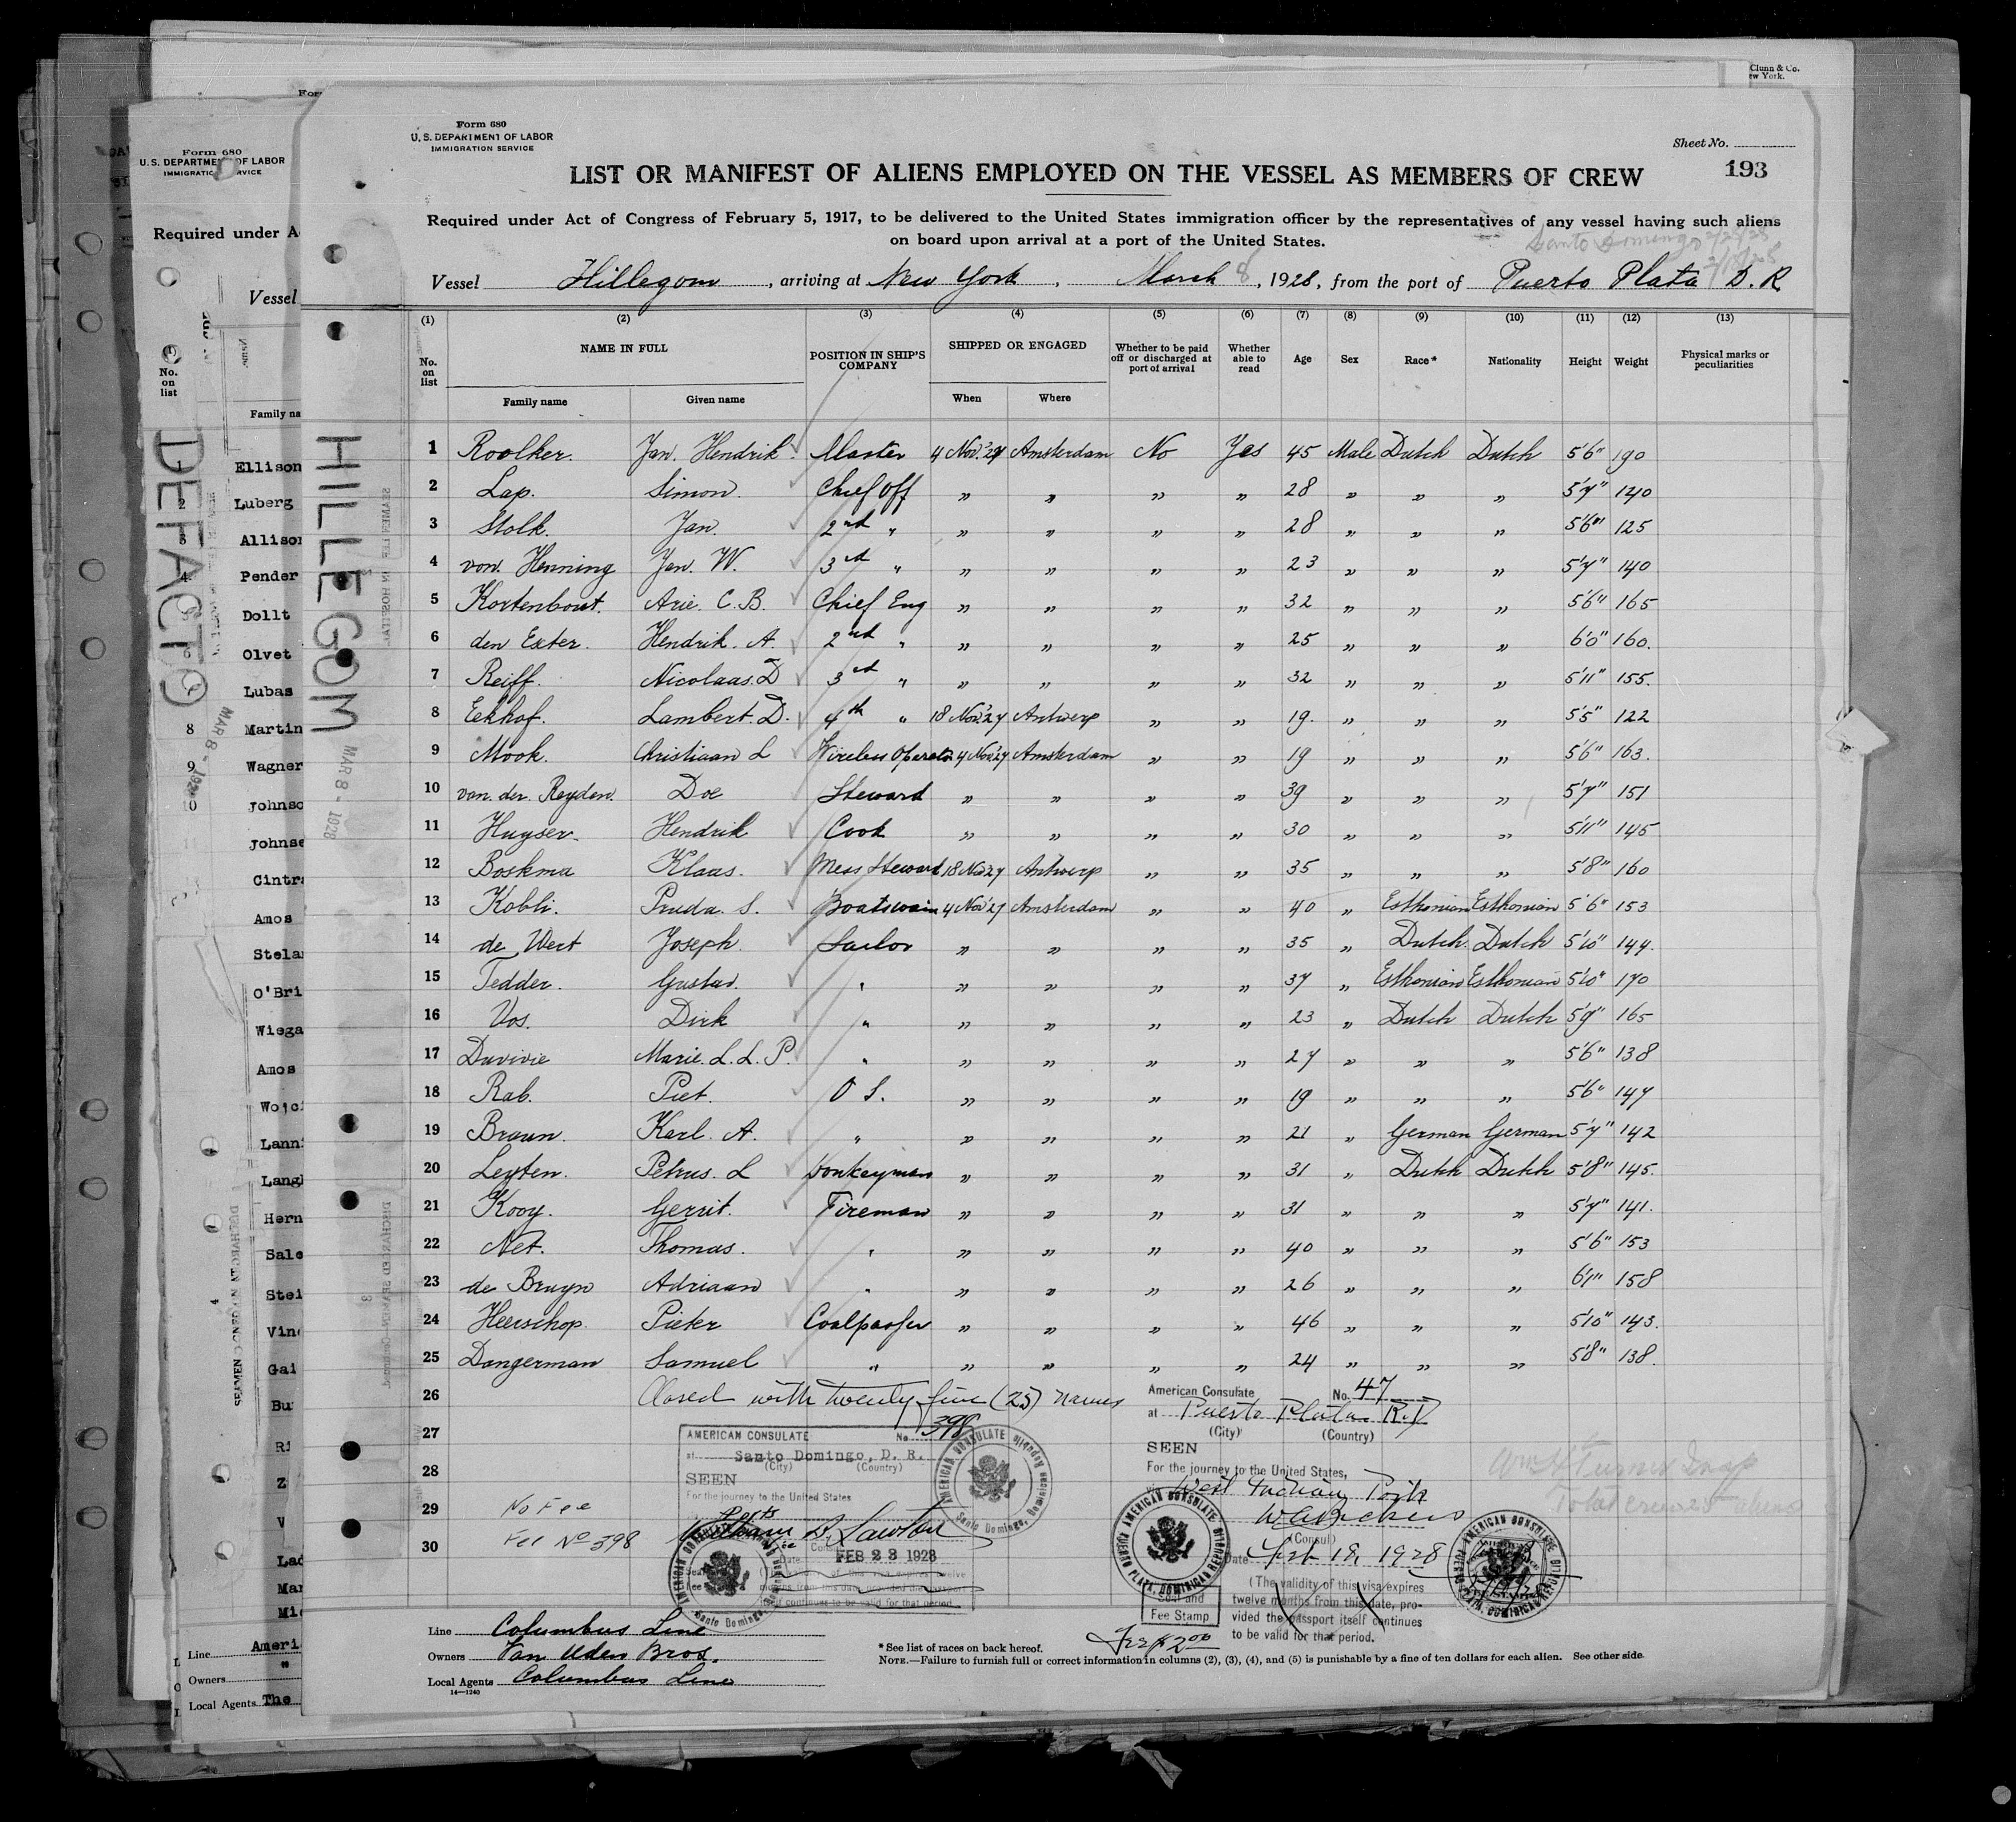 Clunn & Co.
ew York.
Form 680
U. S. DEPARTMENT OF LABOR
IMMIGRATION SERVICE
Required under A
Vessel
No.
on
list
Family na
DEFACTO
MAR 8 - 192
1 Ellison
2 Luberg
3 Allison
4 Pender
5 Dollt
6 Olvet
Lubas
8 Martin
9 Wagner
Johnso
Johnse
Cintra
Amos
Stelan
O'Bri
Wiega
Amos
Wojci
Lann
Lang
Hern
Sale
Stei
Vinc
Gai
Bu
Ri
Z
V
Lad
Mar
Mi
Line Ameri
Owners "
Local Agents The
HILLEGOM
MAR 8 - 1928
Form 680
U. S. DEPARTMENT OF LABOR
IMMIGRATION SERVICE
Sheet No.
193
LIST OR MANIFEST OF ALIENS EMPLOYED ON THE VESSEL AS MEMBERS OF CREW
Required under Act of Congress of February 5, 1917, to be delivered to the United States immigration officer by the representatives of any vessel having such aliens
on board upon arrival at a port of the United States.
Santo Domingo 2/23/28
Vessel Hillegom, arriving at New York, March 8, 1928, from the port of Puerto Plata D. R.
(1) (2) (3) (4) (5) (6) (7) (8) (9) (10) (11) (12) (13)
No. on list NAME IN FULL POSITION IN SHIP'S COMPANY SHIPPED OR ENGAGED Whether to be paid off or discharged at port of arrival Whether able to read Age Sex Race* Nationality Height Weight Physical marks or peculiarities
Family name Given name When Where
1 Roolker. Jan. Hendrik Master 4 Nov. '27 Amsterdam No Yes 45 Male Dutch Dutch 5'6" 190
2 Lap. Simon. Chief Off " " " " 28 " " " 5'7" 140
3 Stolk. Jan. 2nd " " " " " 28 " " " 5'6" 125
4 von. Henning Jan. W. 3rd " " " " " 23 " " " 5'7" 140
5 Kortenbout. Arie. C. B. Chief Eng " " " " 32 " " " 5'6" 165
6 den Exter. Hendrik. A. 2nd " " " " " 25 " " " 6'0" 160.
7 Reiff. Nicolaas. D 3rd " " " " " 32 " " " 5'11" 155.
8 Eekhof. Lambert. D. 4th " 18 Nov. '27 Antwerp " " 19. " " " 5'5" 122
9 Mook. Christiaan L Wireless Operator 4 Nov. '27 Amsterdam " " 19 " " " 5'6" 163.
10 van. der. Reyden. Doe Steward " " " " 39 " " " 5'7" 151
11 Huyser. Hendrik Cook " " " " 30 " " " 5'11" 145
12 Boskma Klaas. Mess Steward 18 Nov. 27 Antwerp " " 35 " " " 5'8" 160
13 Kobli. Pruda. S. Boatswain 4 Nov. '27 Amsterdam " " 40 " Esthonian Esthonian 5'6" 153
14 de Wert Joseph. Sailor " " " " 35 " Dutch. Dutch 5'10" 144.
15 Tedder. Gustav. " " " " " 37 " Esthonian Esthonian 5'10" 170
16 Vos. Dirk " " " " " 23 " Dutch Dutch 5'9" 165
17 Duvivie Marie. L. L. P. " " " " " 27 " " " 5'6" 138
18 Rab. Piet. O S. " " " " 19 " " " 5'6" 147
19 Braun. Karl. A. " " " " " 21 " German German 5'7" 142
20 Leyten. Petrus. L Donkeyman " " " " 31 " Dutch Dutch 5'8" 145.
21 Kooy. Gerrit. Fireman " " " " 31 " " " 5'7" 141.
22 Net. Thomas. " " " " " 40 " " " 5'6" 153
23 de Bruyn Adriaan " " " " " 26 " " " 6'1" 158
24 Heerschop. Pieter Coalpasser " " " " 46 " " " 5'10" 143.
25 Dongerman Samuel " " " " " 24 " " " 5'8" 138.
26 Closed with twenty five (25) names
27
28
29
30
AMERICAN CONSULATE No 398
at Santo Domingo, D. R.
(City) (Country)
SEEN
For the journey to the United States
William B. Lawton
Date FEB 23 1928
AMERICAN CONSULATE Santo Domingo, Dominican Republic
No Fee
Fee No 398
American Consulate No. 47
at Puerto Plata R.D
(City) (Country)
SEEN
For the journey to the United States,
West Indian Ports
(Consul)
Date Feb 18, 1928
(The validity of this visa expires
twelve months from this date, pro-
vided the passport itself continues
to be valid for that period.
Seal and
Fee Stamp
Fee $2.00
AMERICAN CONSULATE PUERTO PLATA, DOMINICAN REPUBLIC
Wm H Turner Insp
Total crew 25 aliens
Line Columbus Line
Owners Van Uden Bros.
Local Agents Columbus Line
14—1240
* See list of races on back hereof.
NOTE.—Failure to furnish full or correct information in columns (2), (3), (4), and (5) is punishable by a fine of ten dollars for each alien. See other side.